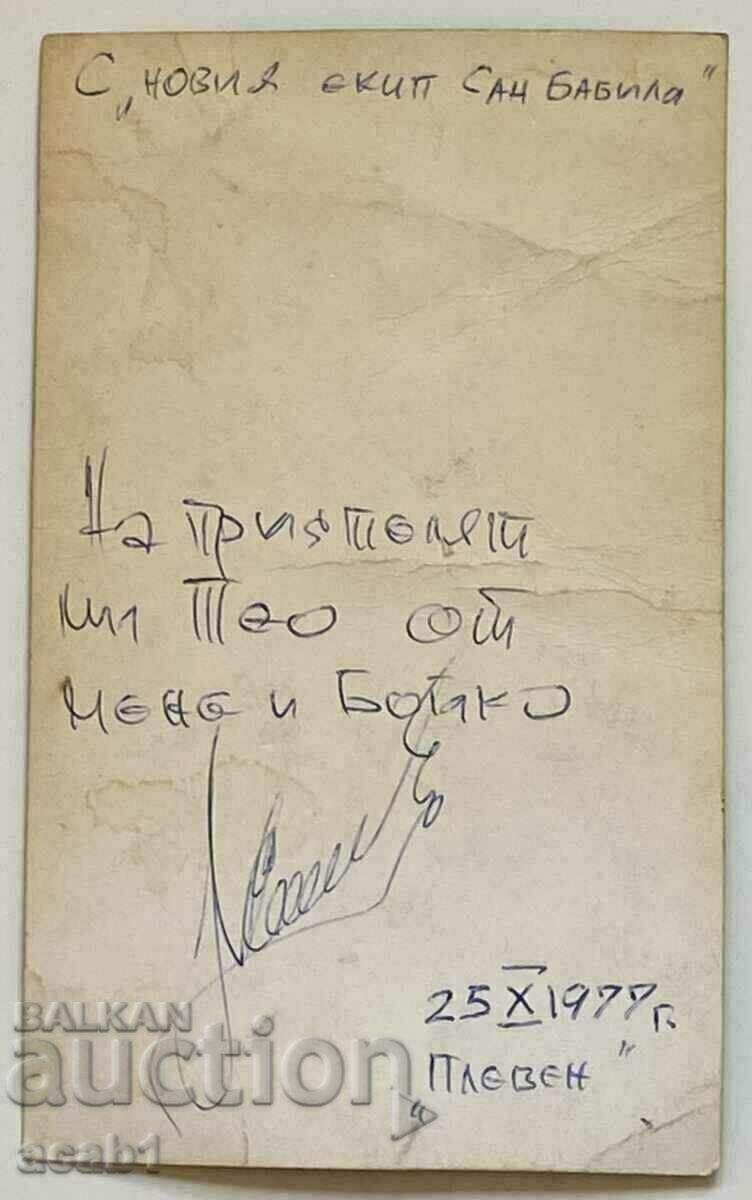 С „НОВИЯ ЕКИП САН БАБИЛА"
На приятелят
ми Тео от
мене и Божко
25 X 1977 г.
„ПЛЕВЕН"
BALKAN
auction
acab1